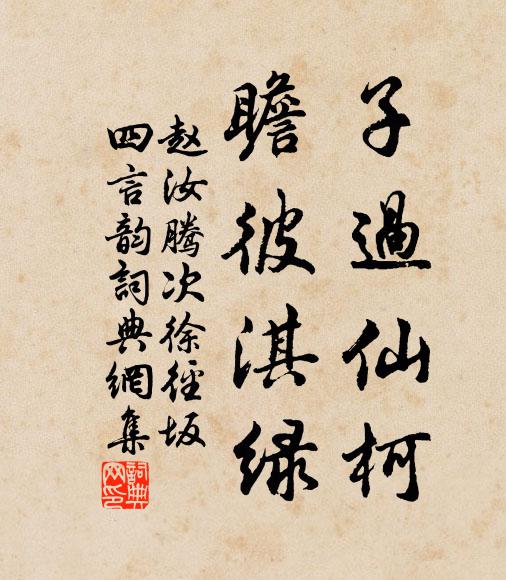 子過仙柯
瞻彼淇绿
赵汝腾次徐徑坂
四言韵詞典網集
詞典網印